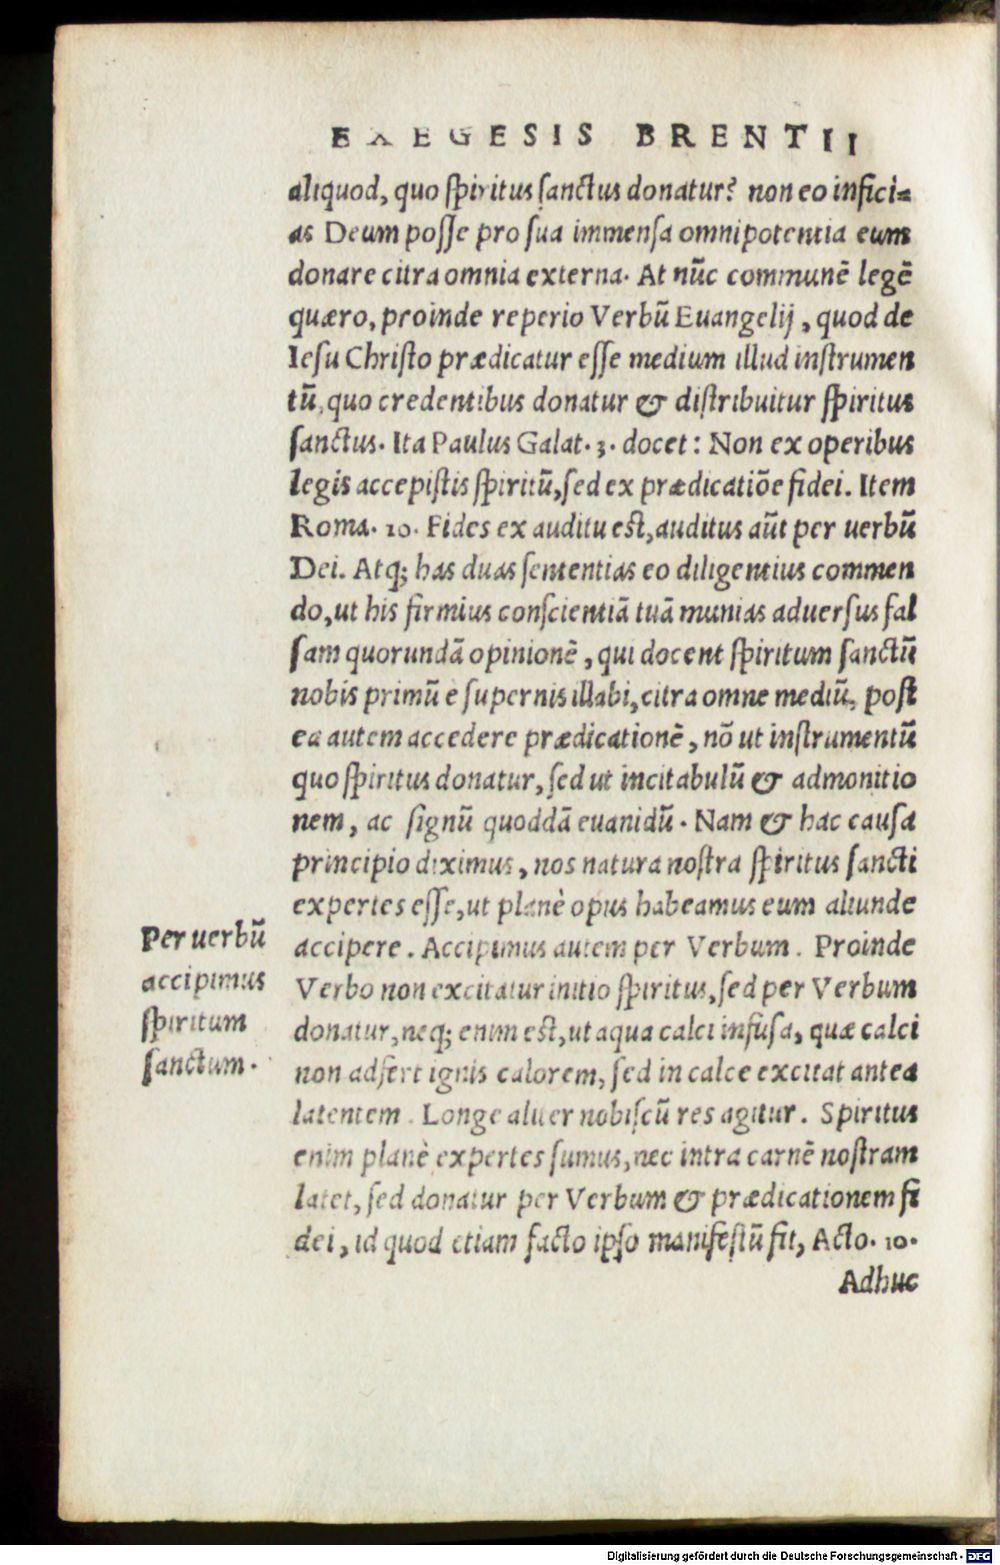 EXEGESIS BRENTII
aliquod, quo ſpiritus ſanctus donatur? non eo infici=
as Deum poſſe pro ſua immenſa omnipotentia eum
donare citra omnia externa. At nūc communē legē
quæro, proinde reperio Verbū Euangelij, quod de
Ieſu Chriſto prædicatur eſſe medium illud inſtrumen
tū, quo credentibus donatur & diſtribuitur ſpiritus
ſanctus. Ita Paulus Galat. 3. docet: Non ex operibus
legis accepiſtis ſpiritū, ſed ex prædicatiōe fidei. Item
Roma. 10. Fides ex auditu eſt, auditus aūt per uerbū
Dei. Atq; has duas ſententias eo diligentius commen
do, ut his firmius conſcientiā tuā munias aduerſus fal
ſam quorundā opinionē, qui docent ſpiritum ſanctū
nobis primū e ſupernis illabi, citra omne mediū, poſt
ea autem accedere prædicationē, nō ut inſtrumentū
quo ſpiritus donatur, ſed ut incitabulū & admonitio
nem, ac ſignū quoddā euanidū. Nam & hac cauſa
principio diximus, nos natura noſtra ſpiritus ſancti
expertes eſſe, ut planè opus habeamus eum aliunde
accipere. Accipimus autem per Verbum. Proinde
Verbo non excitatur initio ſpiritus, ſed per Verbum
donatur, neq; enim eſt, ut aqua calci infuſa, quæ calci
non adfert ignis calorem, ſed in calce excitat antea
latentem. Longe aliter nobiſcū res agitur. Spiritus
enim planè expertes ſumus, nec intra carnē noſtram
latet, ſed donatur per Verbum & prædicationem fi
dei, id quod etiam facto ipſo manifeſtū fit, Acto. 10.
Adhuc
Per uerbū
accipimus
ſpiritum
ſanctum.
Digitalisierung gefördert durch die Deutsche Forschungsgemeinschaft - DFG